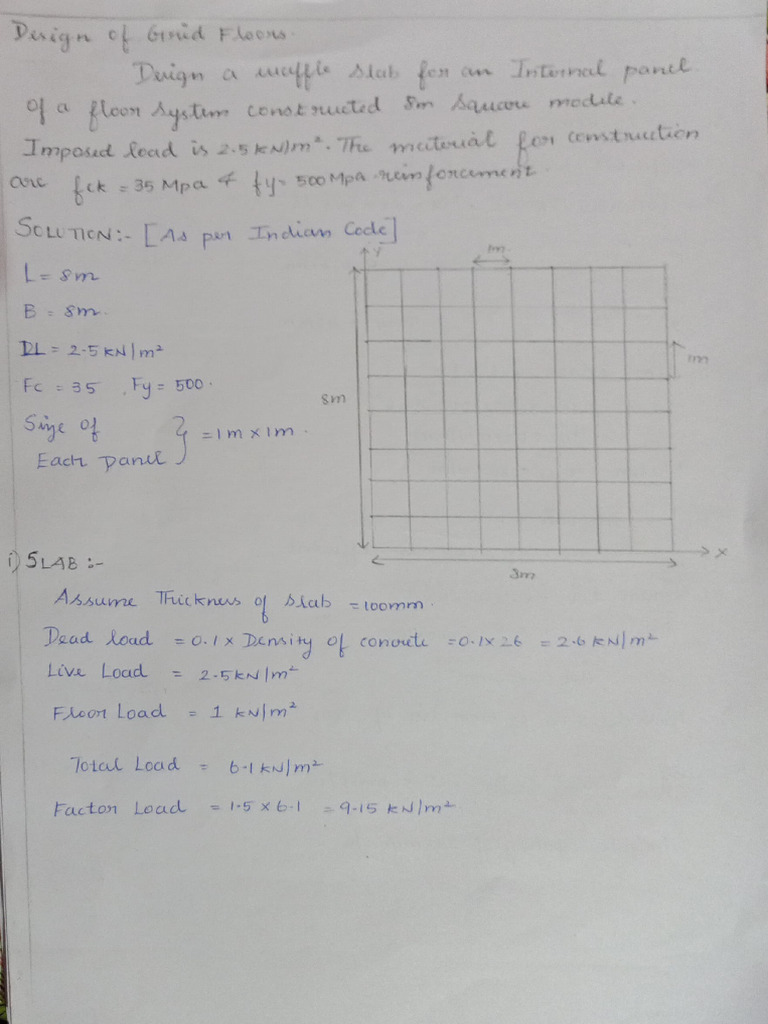 Design of Grid Floors.
Design a waffle slab for an Internal panel
of a floor system constructed 8m square module.
Imposed load is 2.5 kN/m². The material for construction
are fck = 35 Mpa & fy= 500 Mpa reinforcement.
SOLUTION:- [As per Indian Code]
L = 8m
B = 8m.
DL = 2.5 kN/m²
Fc = 35 , Fy = 500.
Size of
Each Panel } = 1m x 1m.
Y
1m
1m
8m
X
8m
i) SLAB :-
Assume Thickness of slab = 100mm.
Dead load = 0.1 x Density of concrete = 0.1 x 26 = 2.6 kN/m²
Live Load = 2.5 kN/m²
Floor Load = 1 kN/m²
Total Load = 6.1 kN/m²
Factor Load = 1.5 x 6.1 = 9.15 kN/m²